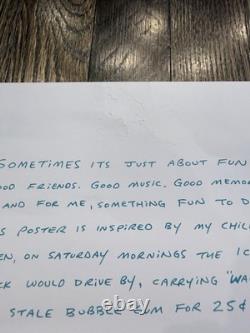 SOMETIMES ITS JUST ABOUT FUN
OOD FRIENDS. GOOD MUSIC. GOOD MEMO
AND FOR ME, SOMETHING FUN TO D
S POSTER IS INSPIRED BY MY CHIL
EN, ON SATURDAY MORNINGS THE IC
CK WOULD DRIVE BY, CARRYING "WA
STALE BUBBLE GUM FOR 25¢